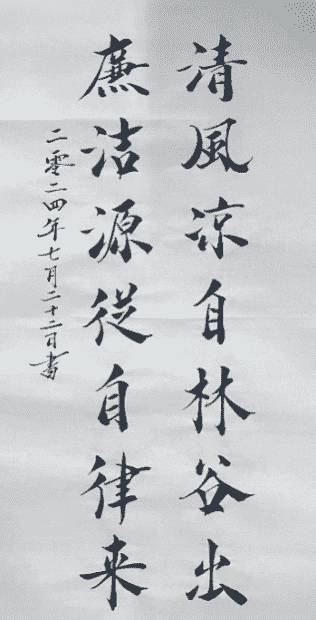 清風涼自林谷出
廉洁源從自律来
二零二四年七月二十二日書